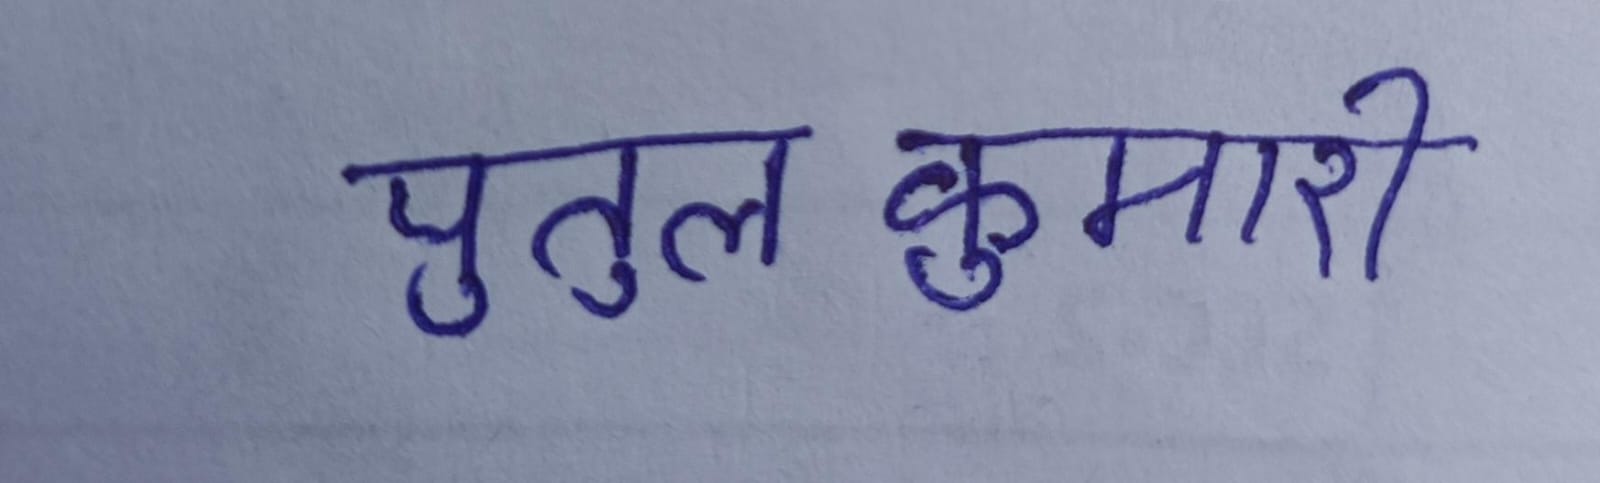 पुतुल कुमारी